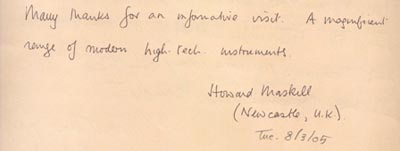 Many thanks for an informative visit. A magnificent
range of modern high-tech. instruments.
Howard Maskill
(Newcastle, U.K).
Tue. 8/3/05